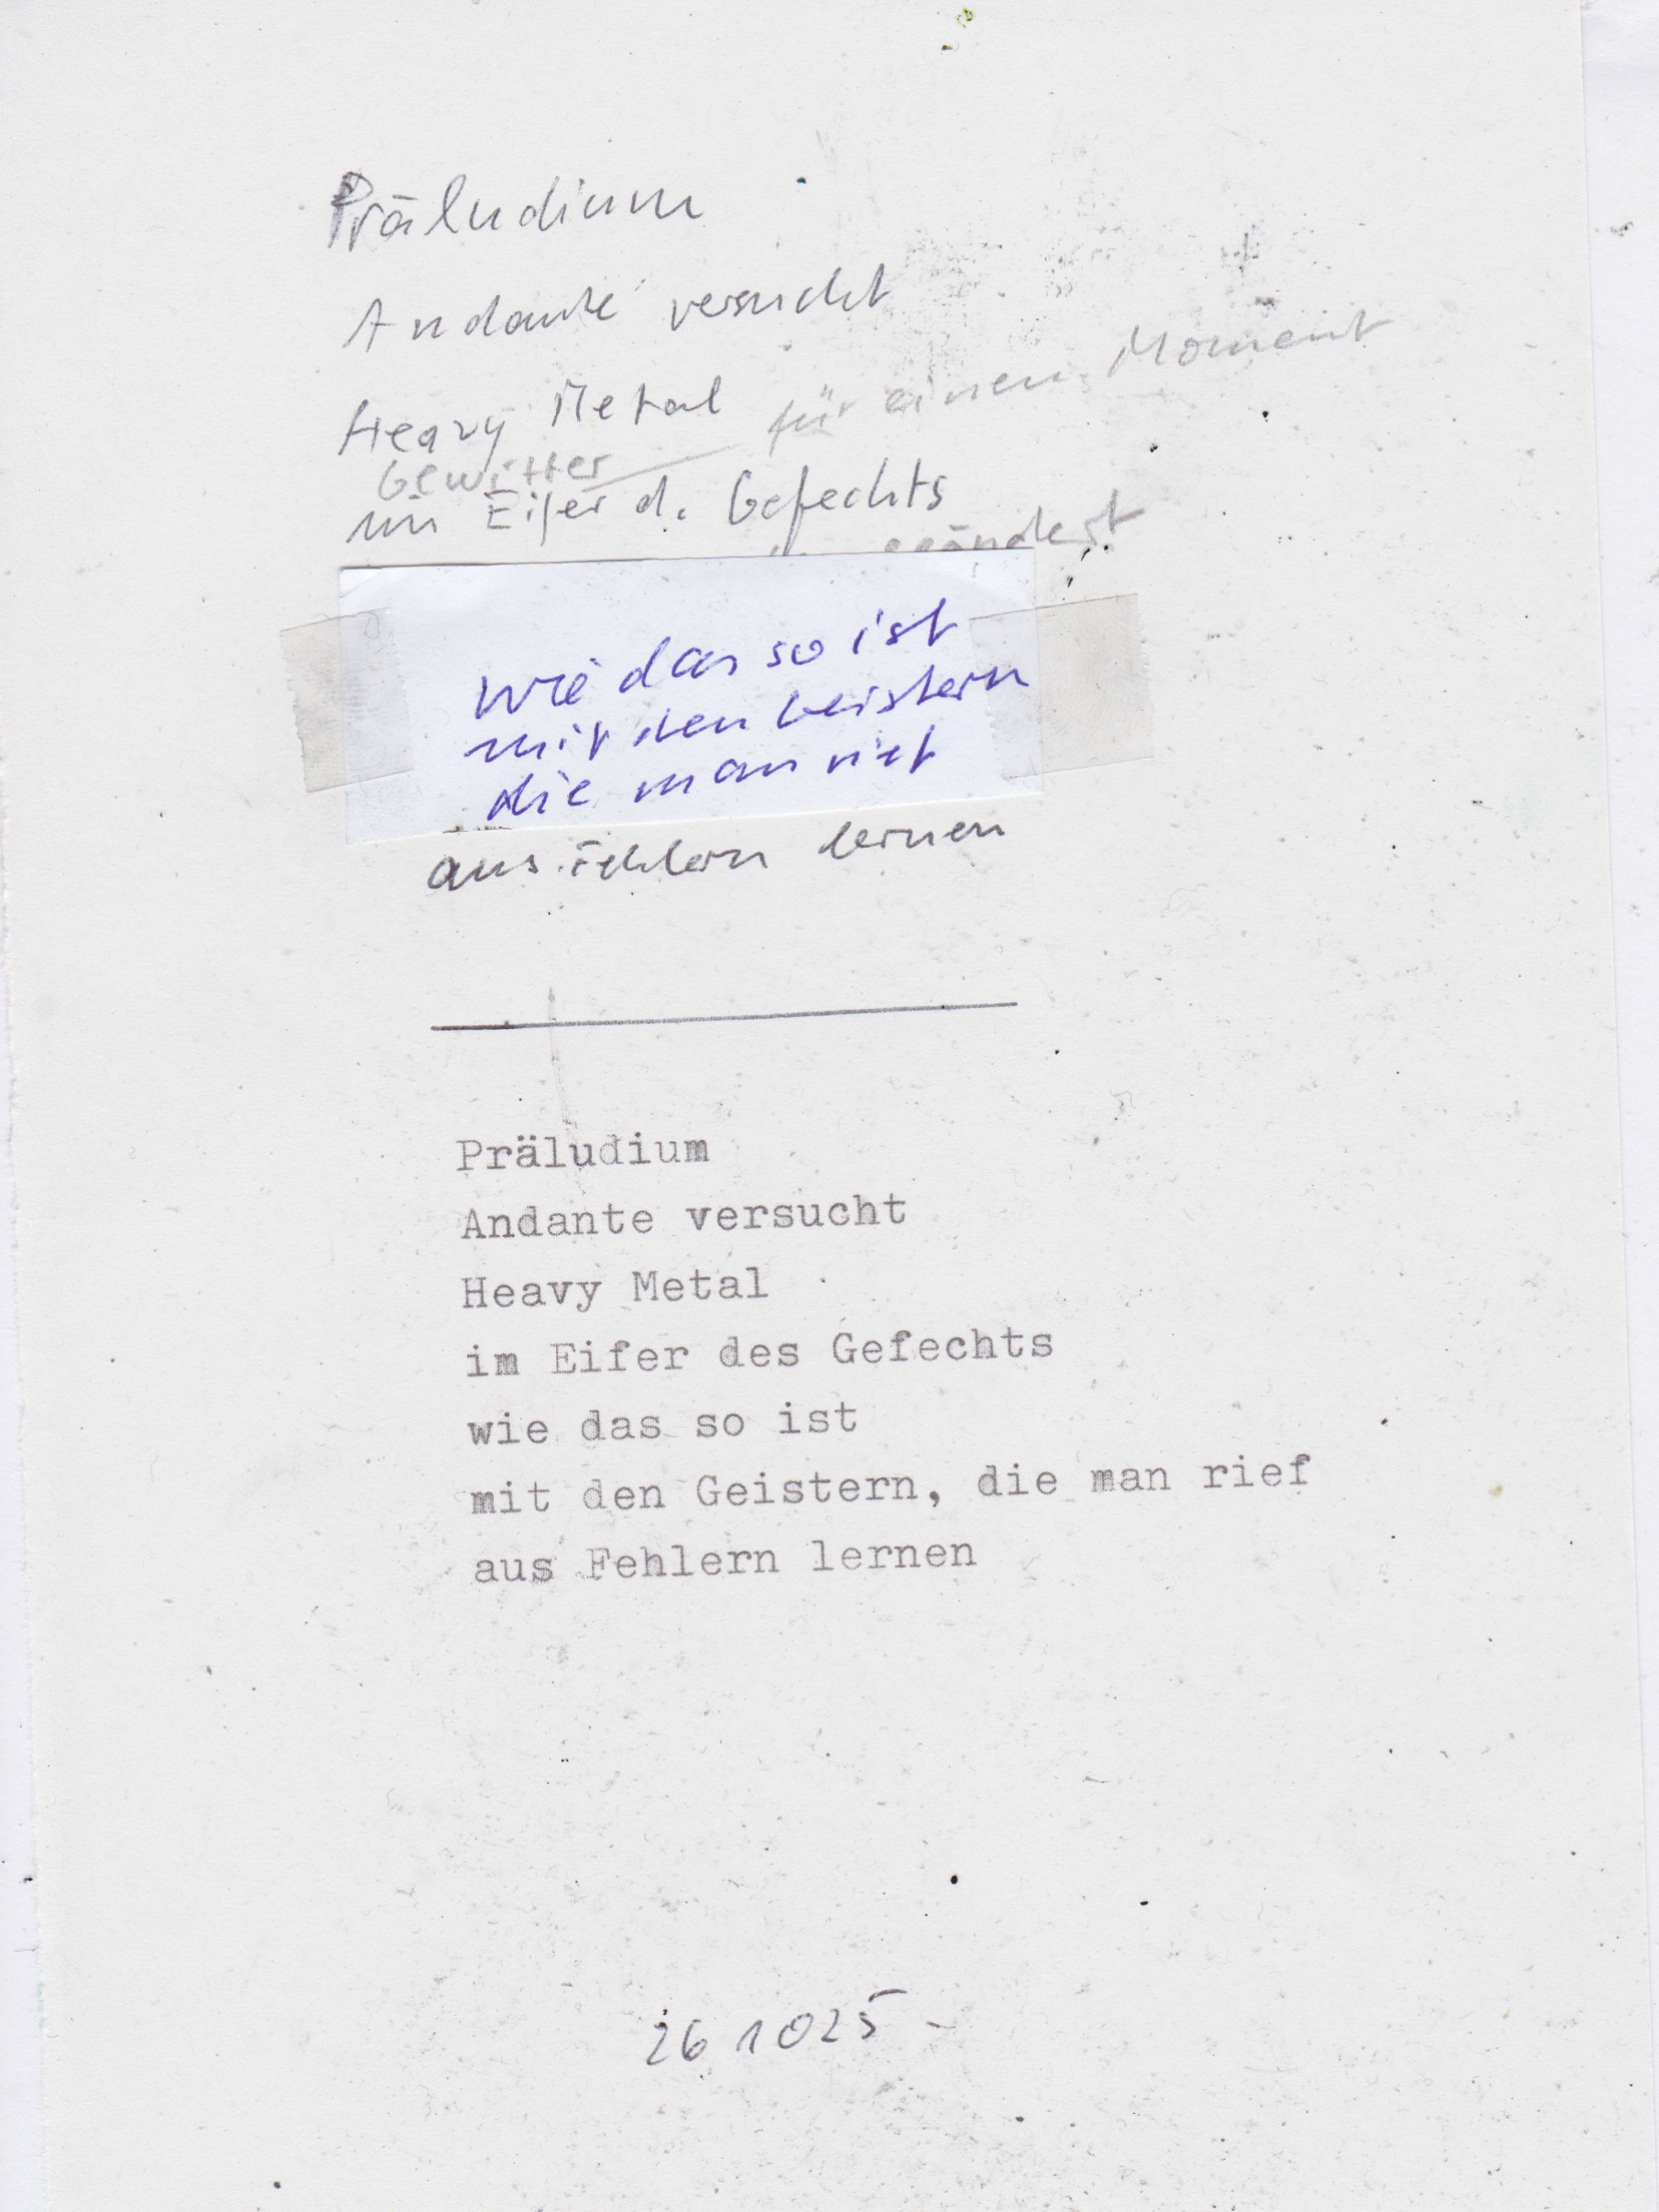 Präludium
Andante versucht
Heavy Metal für einen Moment
Gewitter
im Eifer d. Gefechts
wie das so ist
mit den Geistern
die man rief
aus Fehlern lernen
Präludium
Andante versucht
Heavy Metal
im Eifer des Gefechts
wie das so ist
mit den Geistern, die man rief
aus Fehlern lernen
261025